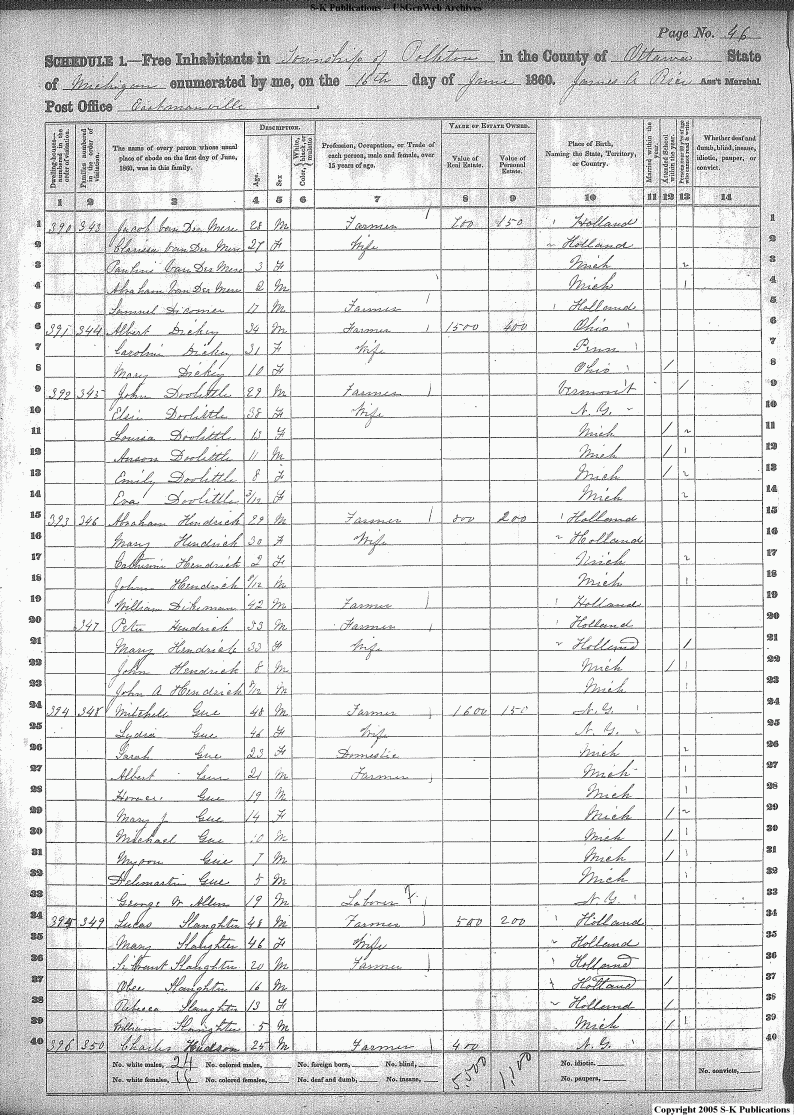 S-K Publications – USGenWeb Archives
Page No. 46
SCHEDULE 1.—Free Inhabitants in Township of Polkton in the County of Ottawa State
of Michigan enumerated by me, on the 16th day of June 1860. James A Rice Ass't Marshal
Post Office Eastmanville.
Dwelling-houses—numbered in the order of visitation. Families numbered in the order of visitation. The name of every person whose usual place of abode on the first day of June, 1860, was in this family. DESCRIPTION. Age. Sex Color, White, black, or mulatto Profession, Occupation, or Trade of each person, male and female, over 15 years of age. VALUE OF ESTATE OWNED. Value of Real Estate. Value of Personal Estate. Place of Birth, Naming the State, Territory, or Country. Married within the year. Attended School within the year. Whether deaf and dumb, blind, insane, idiotic, pauper, or convict.
1 2 3 4 5 6 7 8 9 10 11 12 13 14
1 390 343 Jacob Van Der Mere 28 M Farmer 150 Holland 1
2 Clarissa Van Der Mere 27 F Wife Holland 2
3 Van Der Mere 3 F Mich 3
4 Abraham Van Der Mere 2 M Mich 4
5 Samuel 17 M Farmer Holland 5
6 391 344 Albert Dickey 34 M Farmer 1500 400 Ohio 6
7 Caroline Dickey 31 F Wife Penn 7
8 Mary Dickey 10 F Ohio / 8
9 392 345 John Doolittle 29 M Farmer Vermont / 9
10 Elsie Doolittle 38 F Wife N.Y. 10
11 Louisa Doolittle 13 F Mich / 11
12 Anson Doolittle 11 M Mich / 12
13 Emily Doolittle 8 F Mich / 13
14 Eva Doolittle 3/12 F Mich 14
15 393 346 Abraham Hendrick 29 M Farmer 800 200 Holland 15
16 Mary Hendrick 30 F Wife Holland 16
17 Catherine Hendrick 2 F Mich 17
18 John Hendrick M Mich 18
19 William 42 M Farmer Holland 19
20 347 Peter Hendrick 33 M Farmer Holland 20
21 Mary Hendrick 33 F Wife Holland / 21
22 John Hendrick 8 M Mich / 22
23 John A Hendrick M Mich 23
24 394 348 Mitchell Gue 48 M Farmer 1600 150 N.Y. 24
25 Lydia Gue 46 F Wife N.Y. 25
26 Sarah Gue 23 F Domestic Mich 26
27 Albert Gue 21 M Farmer Mich 27
28 Horace Gue 19 M Mich 28
29 Mary J Gue 14 F Mich / 29
30 Michael Gue 10 M Mich / 30
31 Myron Gue 7 M Mich / 31
32 Gue 5 M Mich 32
33 George W Allen 19 M Laborer N.Y. 33
34 395 349 Lucas Slaughter 48 M Farmer 500 200 Holland 34
35 Mary Slaughter 46 F Wife Holland 35
36 Slaughter 20 M Farmer Holland 36
37 Slaughter 16 M Holland / 37
38 Rebecca Slaughter 13 F Holland / 38
39 William Slaughter 5 M Mich / 39
40 396 350 Charles Hudson 25 M Farmer 400 N.Y. 40
No. white males, 24 No. colored males, No. foreign born, No. blind, 5,500 1,100 No. idiotic, No. convicts,
No. white females, 16 No. colored females, No. deaf and dumb, No. insane, No. paupers,
Copyright 2005 S-K Publications